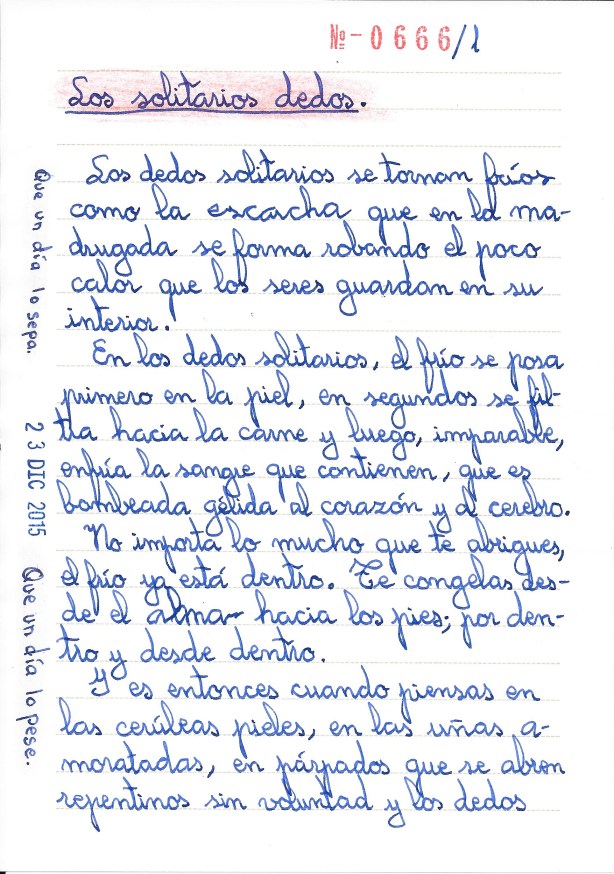 Nº-0666/1
Los solitarios dedos.
Los dedos solitarios se tornan fríos
como la escarcha que en la ma-
drugada se forma robando el poco
calor que los seres guardan en su
interior.
En los dedos solitarios, el frío se posa
primero en la piel, en segundos se fil-
tra hacia la carne y luego, imparable,
enfría la sangre que contienen, que es
bombeada gélida al corazón y al cerebro.
No importa lo mucho que te abrigues,
el frío ya está dentro. Te congelas des-
de el alma hacia los pies; por den-
tro y desde dentro.
Y es entonces cuando piensas en
las cerúleas pieles, en las uñas a-
moratadas, en párpados que se abren
repentinos sin voluntad y los dedos
Que un día lo sepa.
23 DIC 2015
Que un día lo pese.